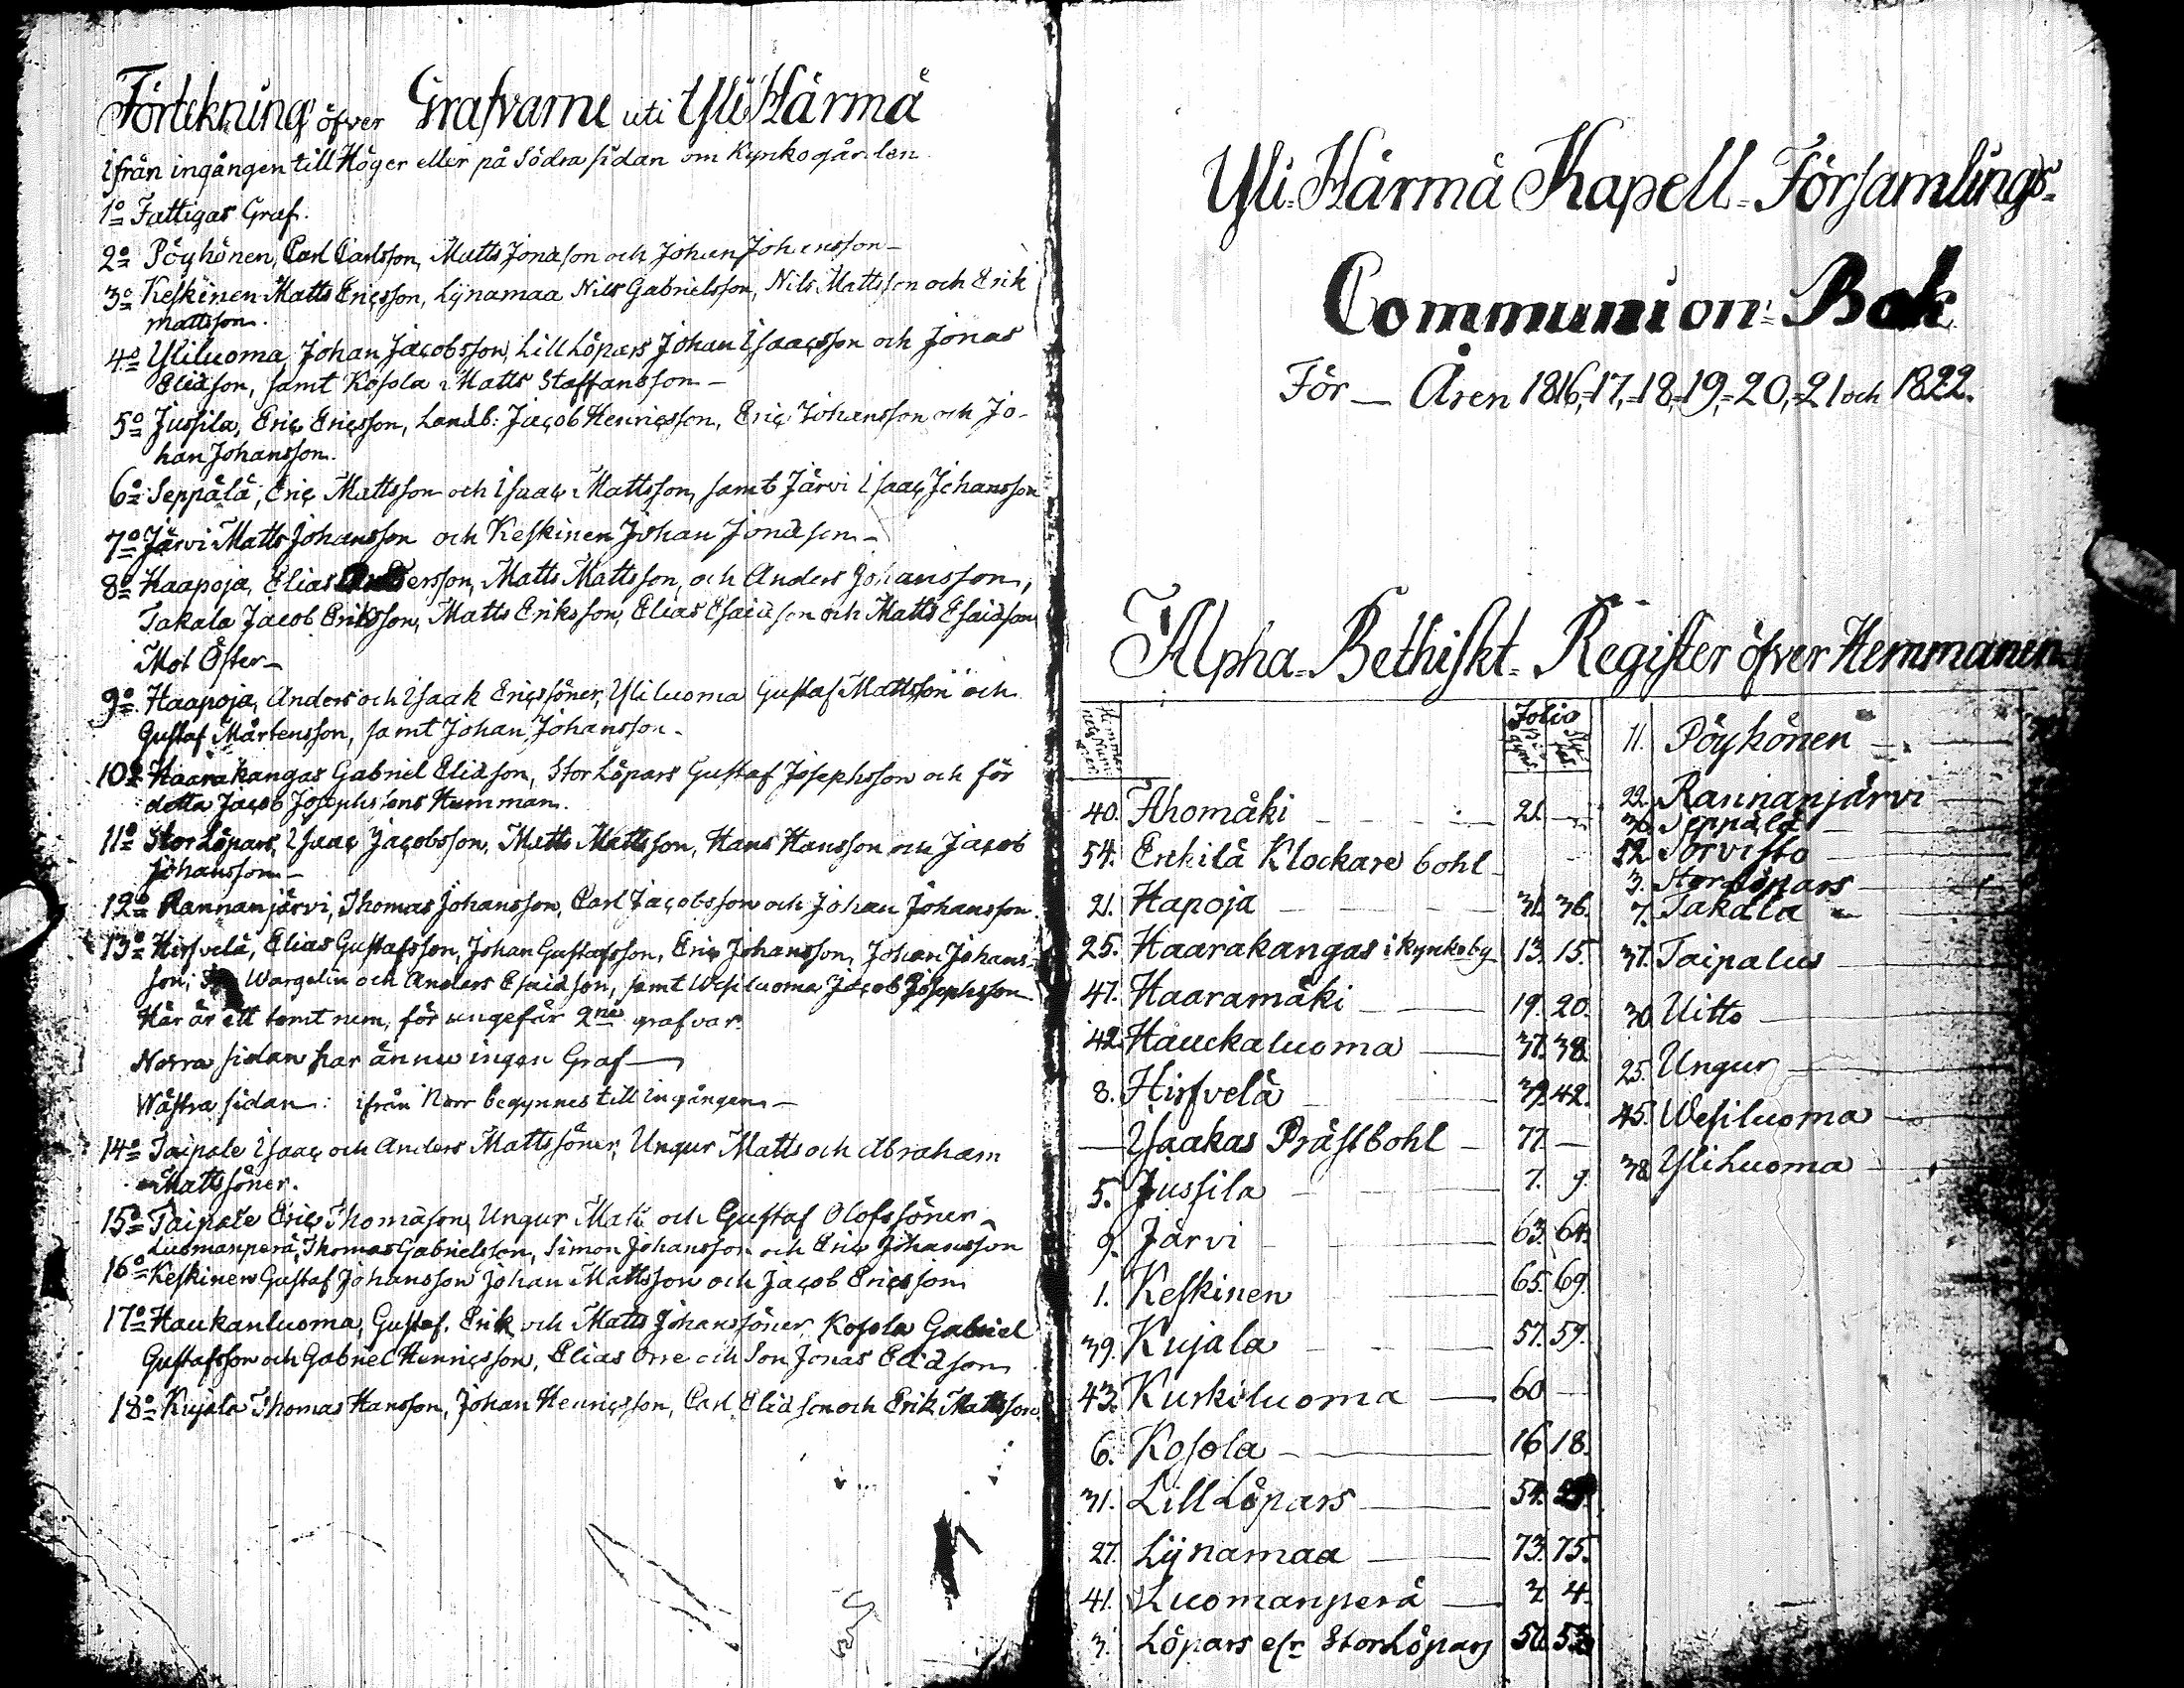 Förtekning öfver Grafvarne uti Yli Härmä
ifrån ingången till Höger eller på Södra sidan om Kyrkogården
1o Fattigas Graf.
2o Pöyhönen, Carl Carlsson, Matts Jonasson och Johan Johansson –
3o Keskinen Matts Ericsson, Lijnamaa Nils Gabrielsson, Nils Mattsson och Erik
Mattsson.
4o Yliluoma, Johan Jacobsson, Lill Löpars Johan Isaacsson och Jonas
Eliasson, samt Kosola Matts Staffansson –
5o Jussila, Eric Ericsson, Landb: Jacob Henricsson, Eric Johansson och Jo-
han Johansson.
6o Seppälä, Eric Mattsson och Isaac Mattsson, samt Järvi Isaac Johansson
7o Järvi Matts Johansson och Keskinen Johan Jonasson –
8o Haapoja, Elias Andersson, Matts Mattsson, och Anders Johansson,
Takala Jacob Eriksson, Matts Eriksson, Elias Esaiasson och Matts Esaiasson
Mot Öster –
9o Haapoja, Anders och Isaak Ericssöner, Yliluoma Gustaf Mattsson och
Gustaf Mårtensson, samt Johan Johansson.
10o Haarakangas Gabriel Eliasson, Stor Löpars Gustaf Josephsson och för
detta Jacob Josephssons Hemman.
11o Stor Löpars, Isaac Jacobsson, Matts Mattsson, Hans Hansson och Jacob
Johansson –
12o Rannanjärvi, Thomas Johansson, Carl Jacobsson och Johan Johansson.
13o Hirsvelä, Elias Gustafsson, Johan Gustafsson, Eric Johansson, Johan Johans-
son, Wargelin och Anders Esaiasson, samt Wesiluoma Jacob Josephsson
Här är ett tomt rum, för ungefär 2ne grafvar.
Norra sidan har ännu ingen Graf –
Wästra sidan: ifrån Norr begynnes till ingången –
14o Taipale Isaac och Anders Mattssöner, Ungur Matts och Abraham
Mattssöner.
15o Taipale Eric Thomasson, Ungur Matts och Gustaf Olofssöner –
Luomanperä, Thomas Gabrielsson, Simon Johansson och Eric Johansson
16o Keskinen Gustaf Johansson Johan Mattsson och Jacob Ericsson
17o Haukanluoma, Gustaf, Erik och Matts Johanssöner, Kosola Gabriel
Gustafsson och Gabriel Henricsson, Elias Orre och Son Jonas Eliasson
18o Kujala Thomas Hansson, Johan Henricsson, Carl Eliasson och Erik Mattsson
Yli-Härmä Kapell-Församlings-
Communion-Bok
För – Åren 1816,-17,-18,-19,-20,-21 och 1822.
Alpha-Bethiskt-Register öfver Hemmanen
Folio
40. Ahomäki 21. –
54. Enkilä Klockare bohl –
21. Hapoja 31. 36.
25. Haarakangas i kyrkoby 13. 15.
47. Haaramäki 19. 20.
42. Hauckaluoma 37. 38.
8. Hirsvelä 39. 42.
– Isaakas Prästbohl – 77. –
5. Jussila 7. 9.
9. Järvi 63. 64.
1. Keskinen 65. 69.
39. Kujala 57. 59.
43. Kuskiluoma 60 –
6. Kosola 16 18.
31. Lill Löpars 54.
27. Lijnamaa 73. 75.
41. Luomanperä 2 4.
3. Löpars elr Stor Löpars 50. 53.
11. Pöyhönen
22. Rannanjärvi
36. Seppälä
52. Sorvisto
3. Stor Löpars
7. Takala
37. Taipalus
30. Uitto
25. Ungur
45. Wesiluoma
38. Yliluoma